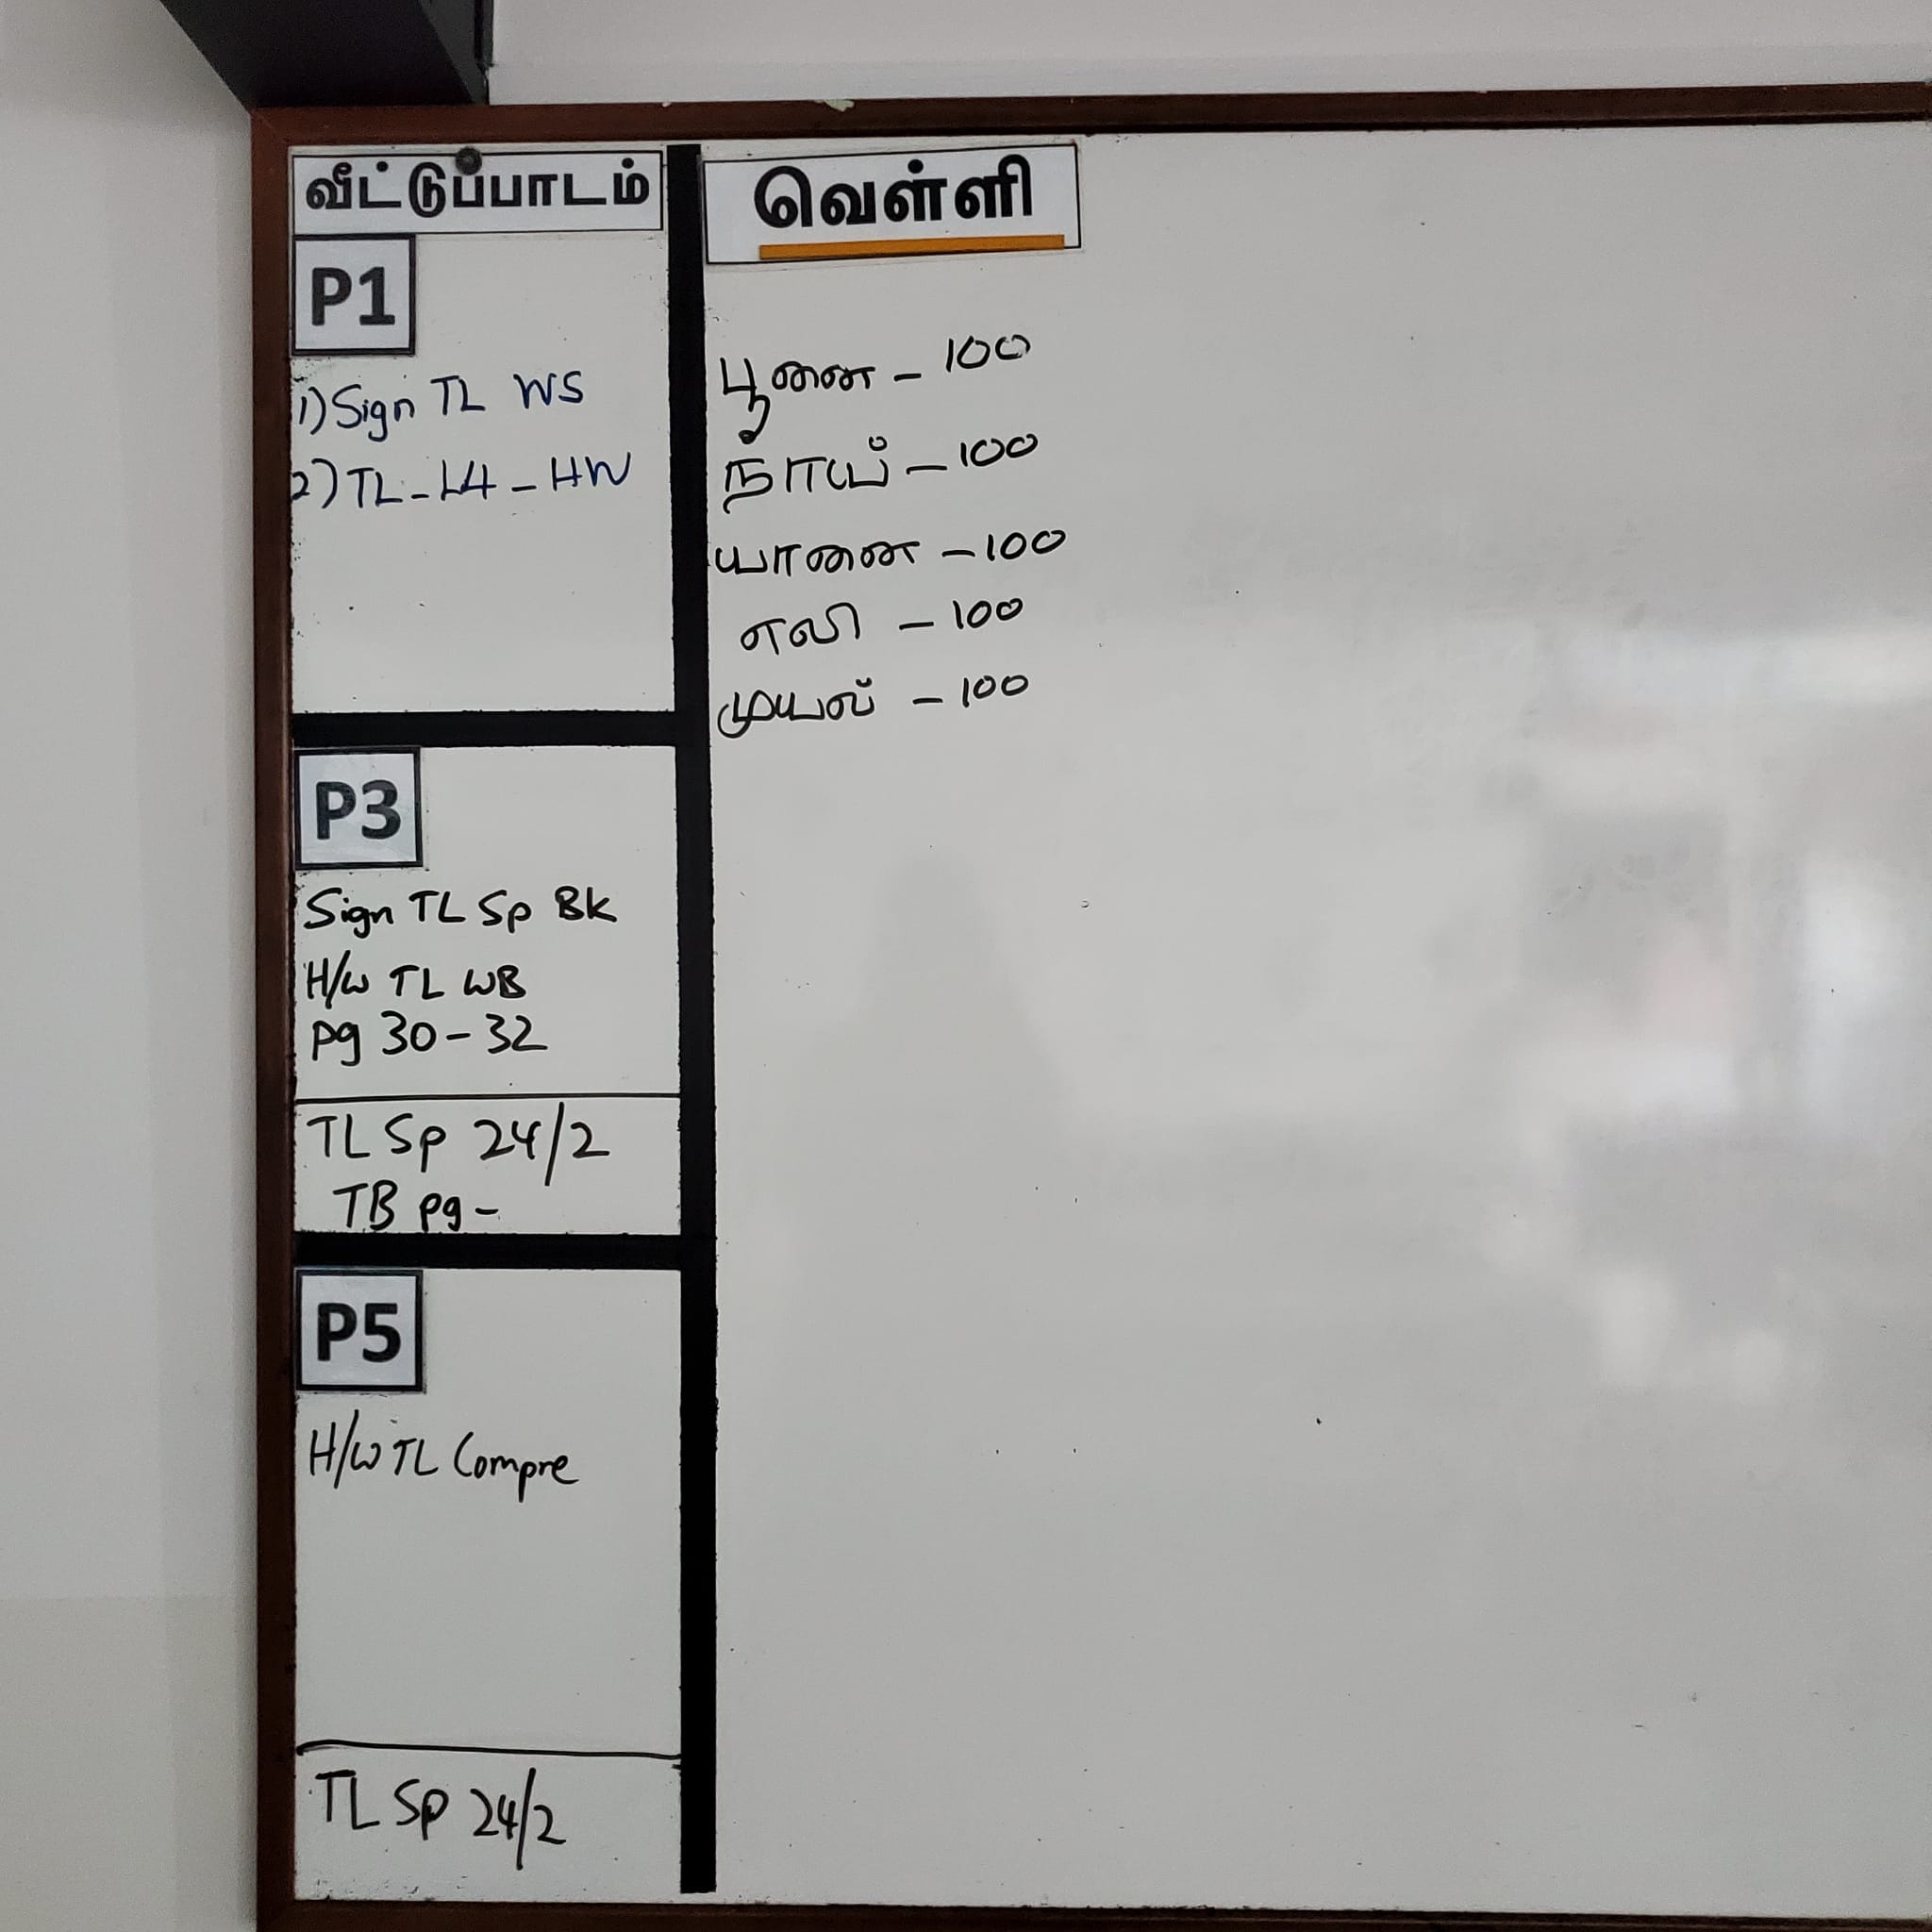 வீட்டுப்பாடம்
P1
1) Sign TL WS
2) TL - L4 - HW
P3
Sign TL Sp Bk
H/W TL WB
pg 30 - 32
TL Sp 24/2
TB pg -
P5
H/W TL Compre
TL Sp 24/2
வெள்ளி
பூனை - 100
நாய் - 100
யானை - 100
எலி - 100
முயல் - 100